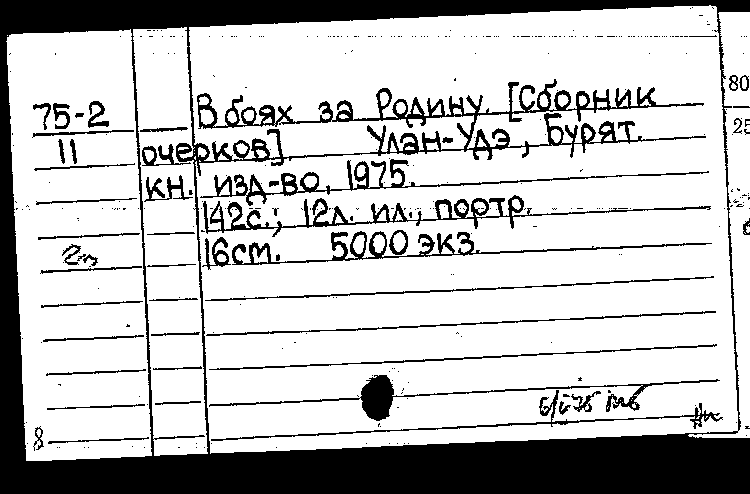 75-2 В боях за Родину. [Сборник
11 очерков]. Улан-Удэ, Бурят.
кн. изд-во, 1975.
142с.; 12л. ил., портр.
16см. 5000 экз.
8
80
25